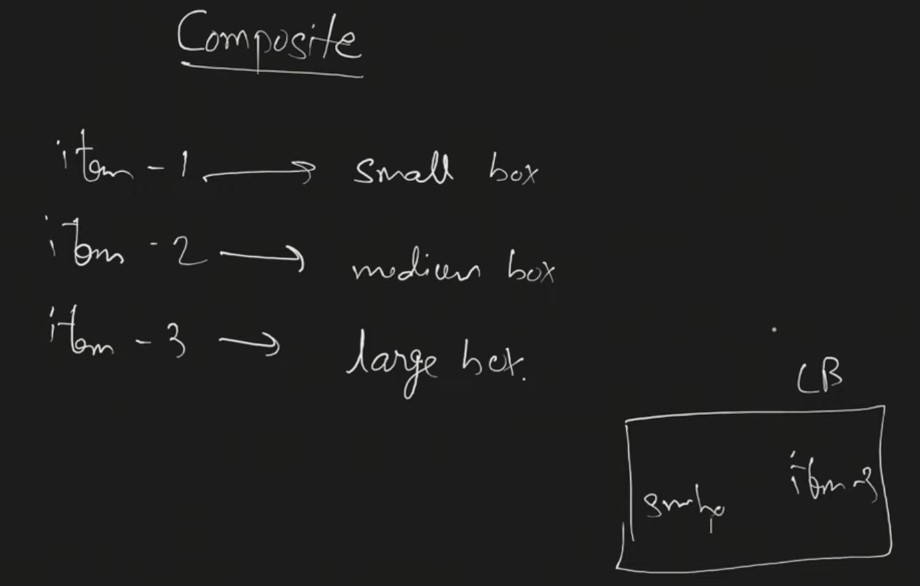 Composite
item - 1 → small box
item - 2 → medium box
item - 3 → large box.
LB
item -3